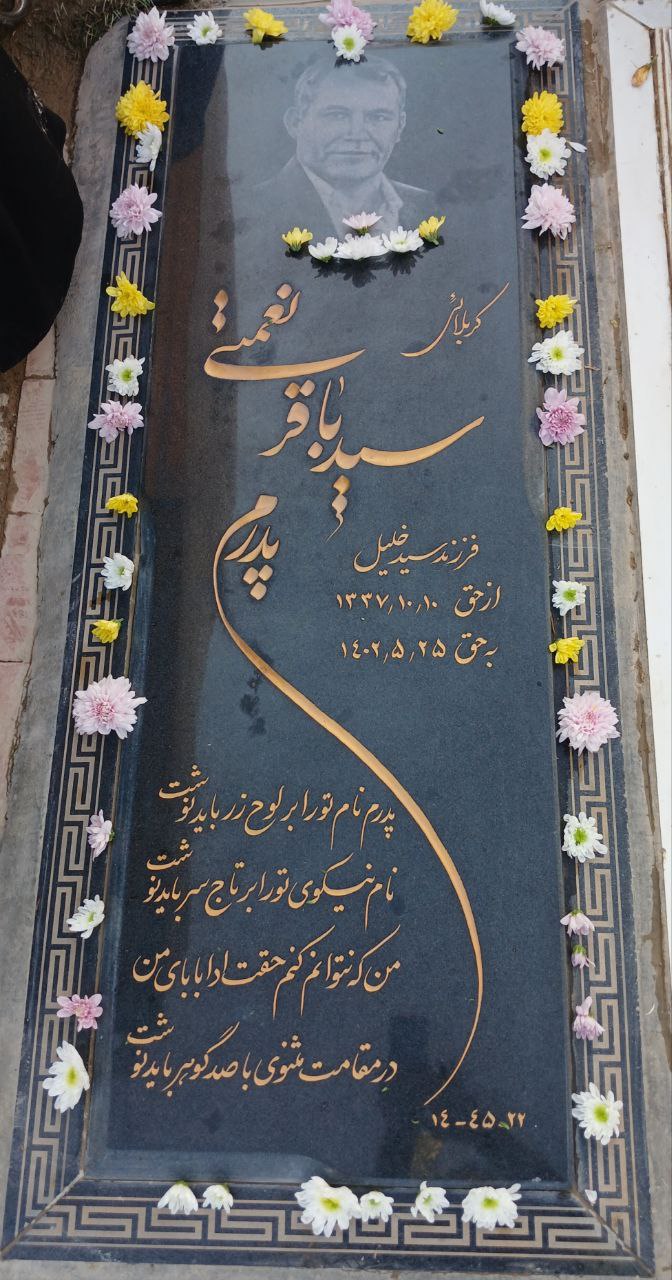 کربلائی
سید باقر نعمتی
پدرم
فرزند سید خلیل
از حق ۱۳۳۷٫۱۰٫۱۰
به حق ۱٤۰۲٫۵٫۲۵
پدرم نام تو را بر لوح زر باید نوشت
نام نیکوی تو را بر تاج سر باید نوشت
من که نتوانم کنم حقت ادا بابای من
در مقامت مثنوی با صد گوهر باید نوشت
۱٤-٤۵-۲۲